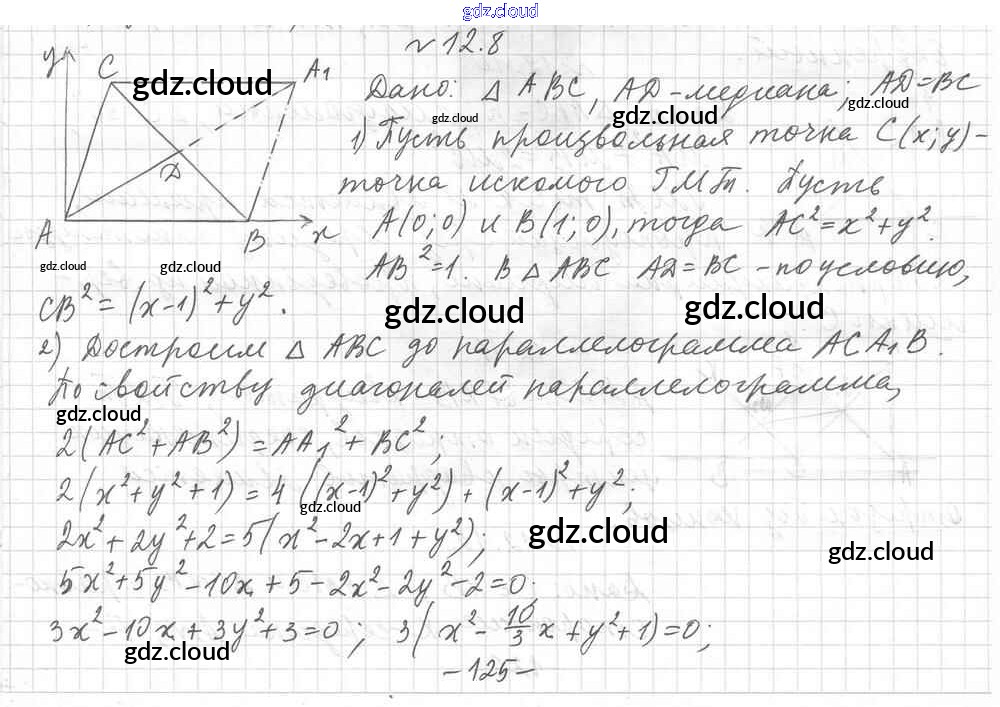 gdz.cloud
№ 12.8
y C gdz.cloud A₁
Дано: △ ABC, AD - медиана; AD = BC
gdz.cloud gdz.cloud
1) Пусть произвольная точка C(x; y) -
D
точка искомого ГМТ. Пусть
A B x
A(0; 0) и B(1; 0), тогда AC² = x² + y².
gdz.cloud gdz.cloud
AB² = 1. В △ ABC AD = BC - по условию,
CB² = (x-1)² + y².
gdz.cloud gdz.cloud
2) Достроим △ ABC до параллелограмма ACA₁B.
По свойству диагоналей параллелограмма,
gdz.cloud
2(AC² + AB²) = AA₁² + BC²;
2(x² + y² + 1) = 4((x-1)² + y²) + (x-1)² + y²;
gdz.cloud
2x² + 2y² + 2 = 5(x² - 2x + 1 + y²);
gdz.cloud gdz.cloud
5x² + 5y² - 10x + 5 - 2x² - 2y² - 2 = 0;
3x² - 10x + 3y² + 3 = 0; 3(x² - 10/3 x + y² + 1) = 0;
gdz.cloud
- 125 -